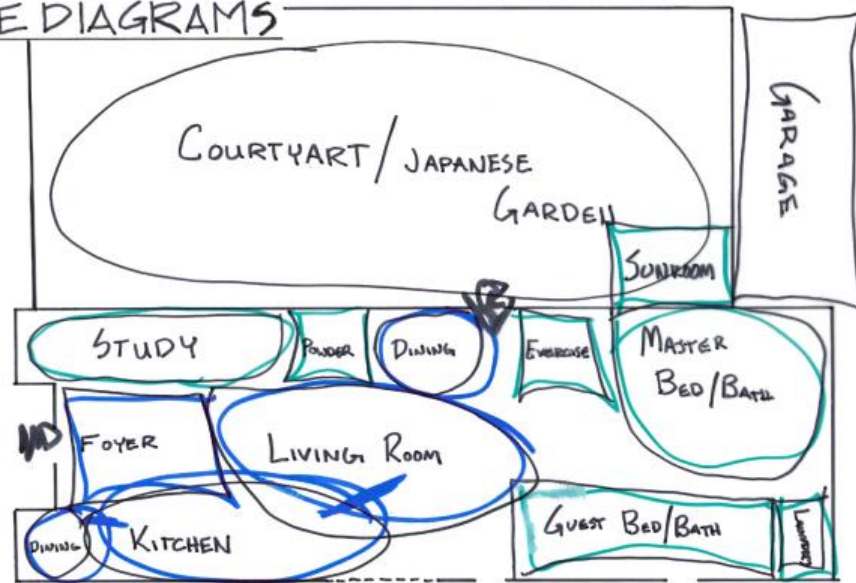 E DIAGRAMS
COURTYART/JAPANESE
GARDEN
GARAGE
SUNROOM
STUDY
POWDER
DINING
EXERCISE
MASTER
BED/BATH
FOYER
LIVING ROOM
DINING
KITCHEN
GUEST BED/BATH
LAUNDRY